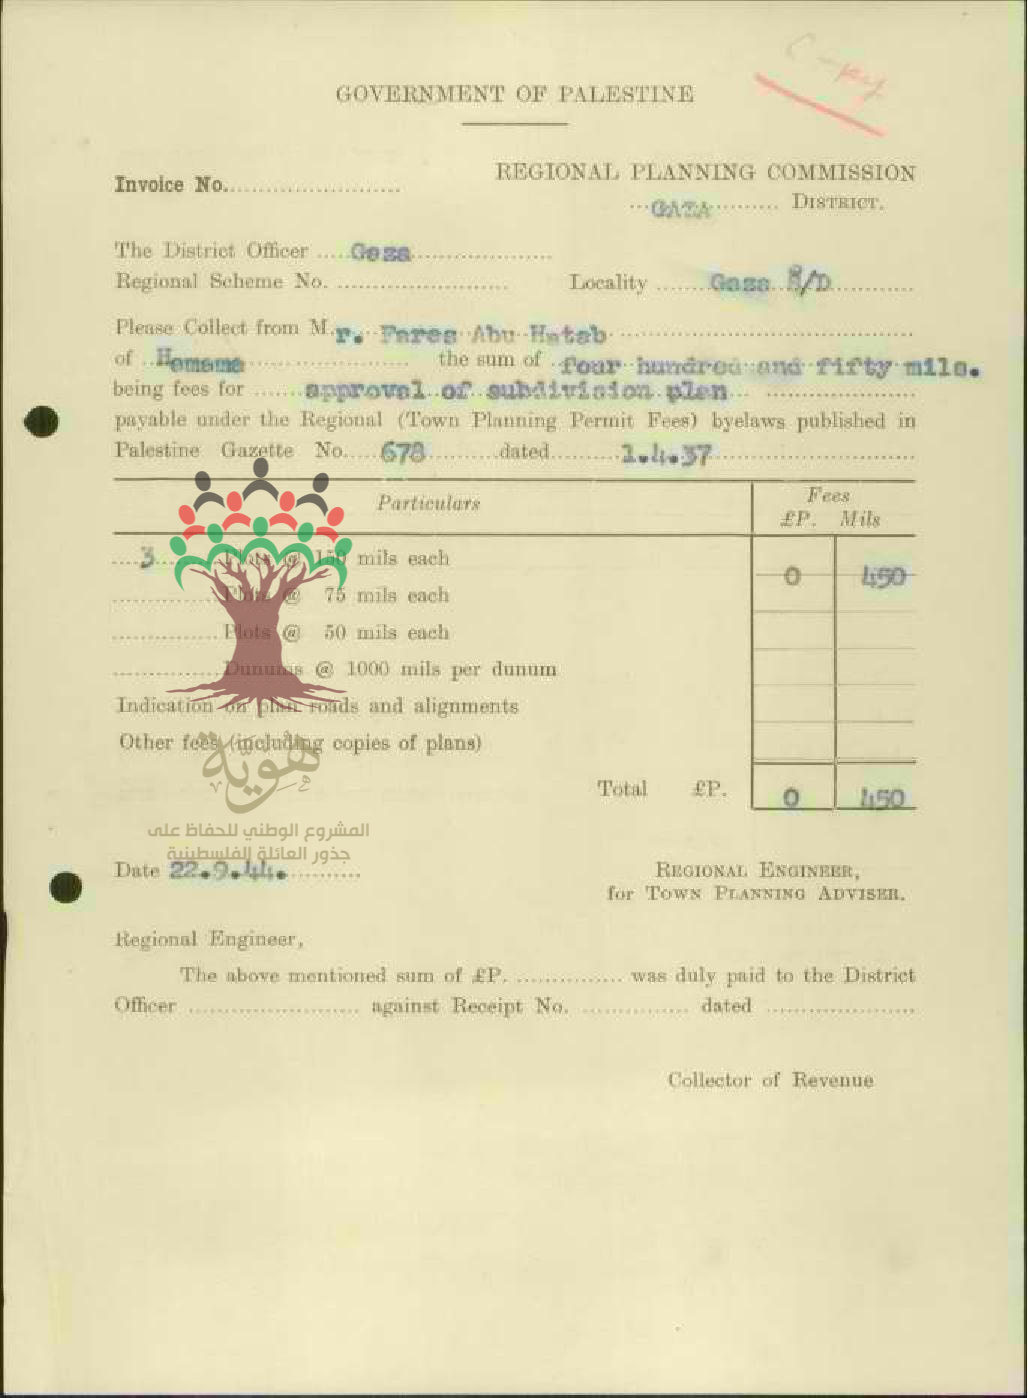 Copy
GOVERNMENT OF PALESTINE
Invoice No..........................
REGIONAL PLANNING COMMISSION
...GAZA.......... DISTRICT.
The District Officer .....Gaza....................
Regional Scheme No. .........................
Locality .......Gaza R/D............
Please Collect from M.r. Fares Abu Hatab..........................................
of ..Hamama....................... the sum of ..four hundred and fifty mils.
being fees for .......approval of subdivision plan... ......................
payable under the Regional (Town Planning Permit Fees) byelaws published in
Palestine Gazette No.....678..........dated..........1.4.37..............................
Particulars
Fees
£P. Mils
....3........Plots @ 150 mils each 0 450
...............Plots @ 75 mils each
...............Plots @ 50 mils each
...............Dunums @ 1000 mils per dunum
Indication on plan roads and alignments
Other fees (including copies of plans)
Total £P. 0 450
هوية
المشروع الوطني للحفاظ على
جذور العائلة الفلسطينية
Date 22.9.44...........
REGIONAL ENGINEER,
for TOWN PLANNING ADVISER.
Regional Engineer,
The above mentioned sum of £P. ............... was duly paid to the District
Officer ........................ against Receipt No. ............... dated .....................
Collector of Revenue